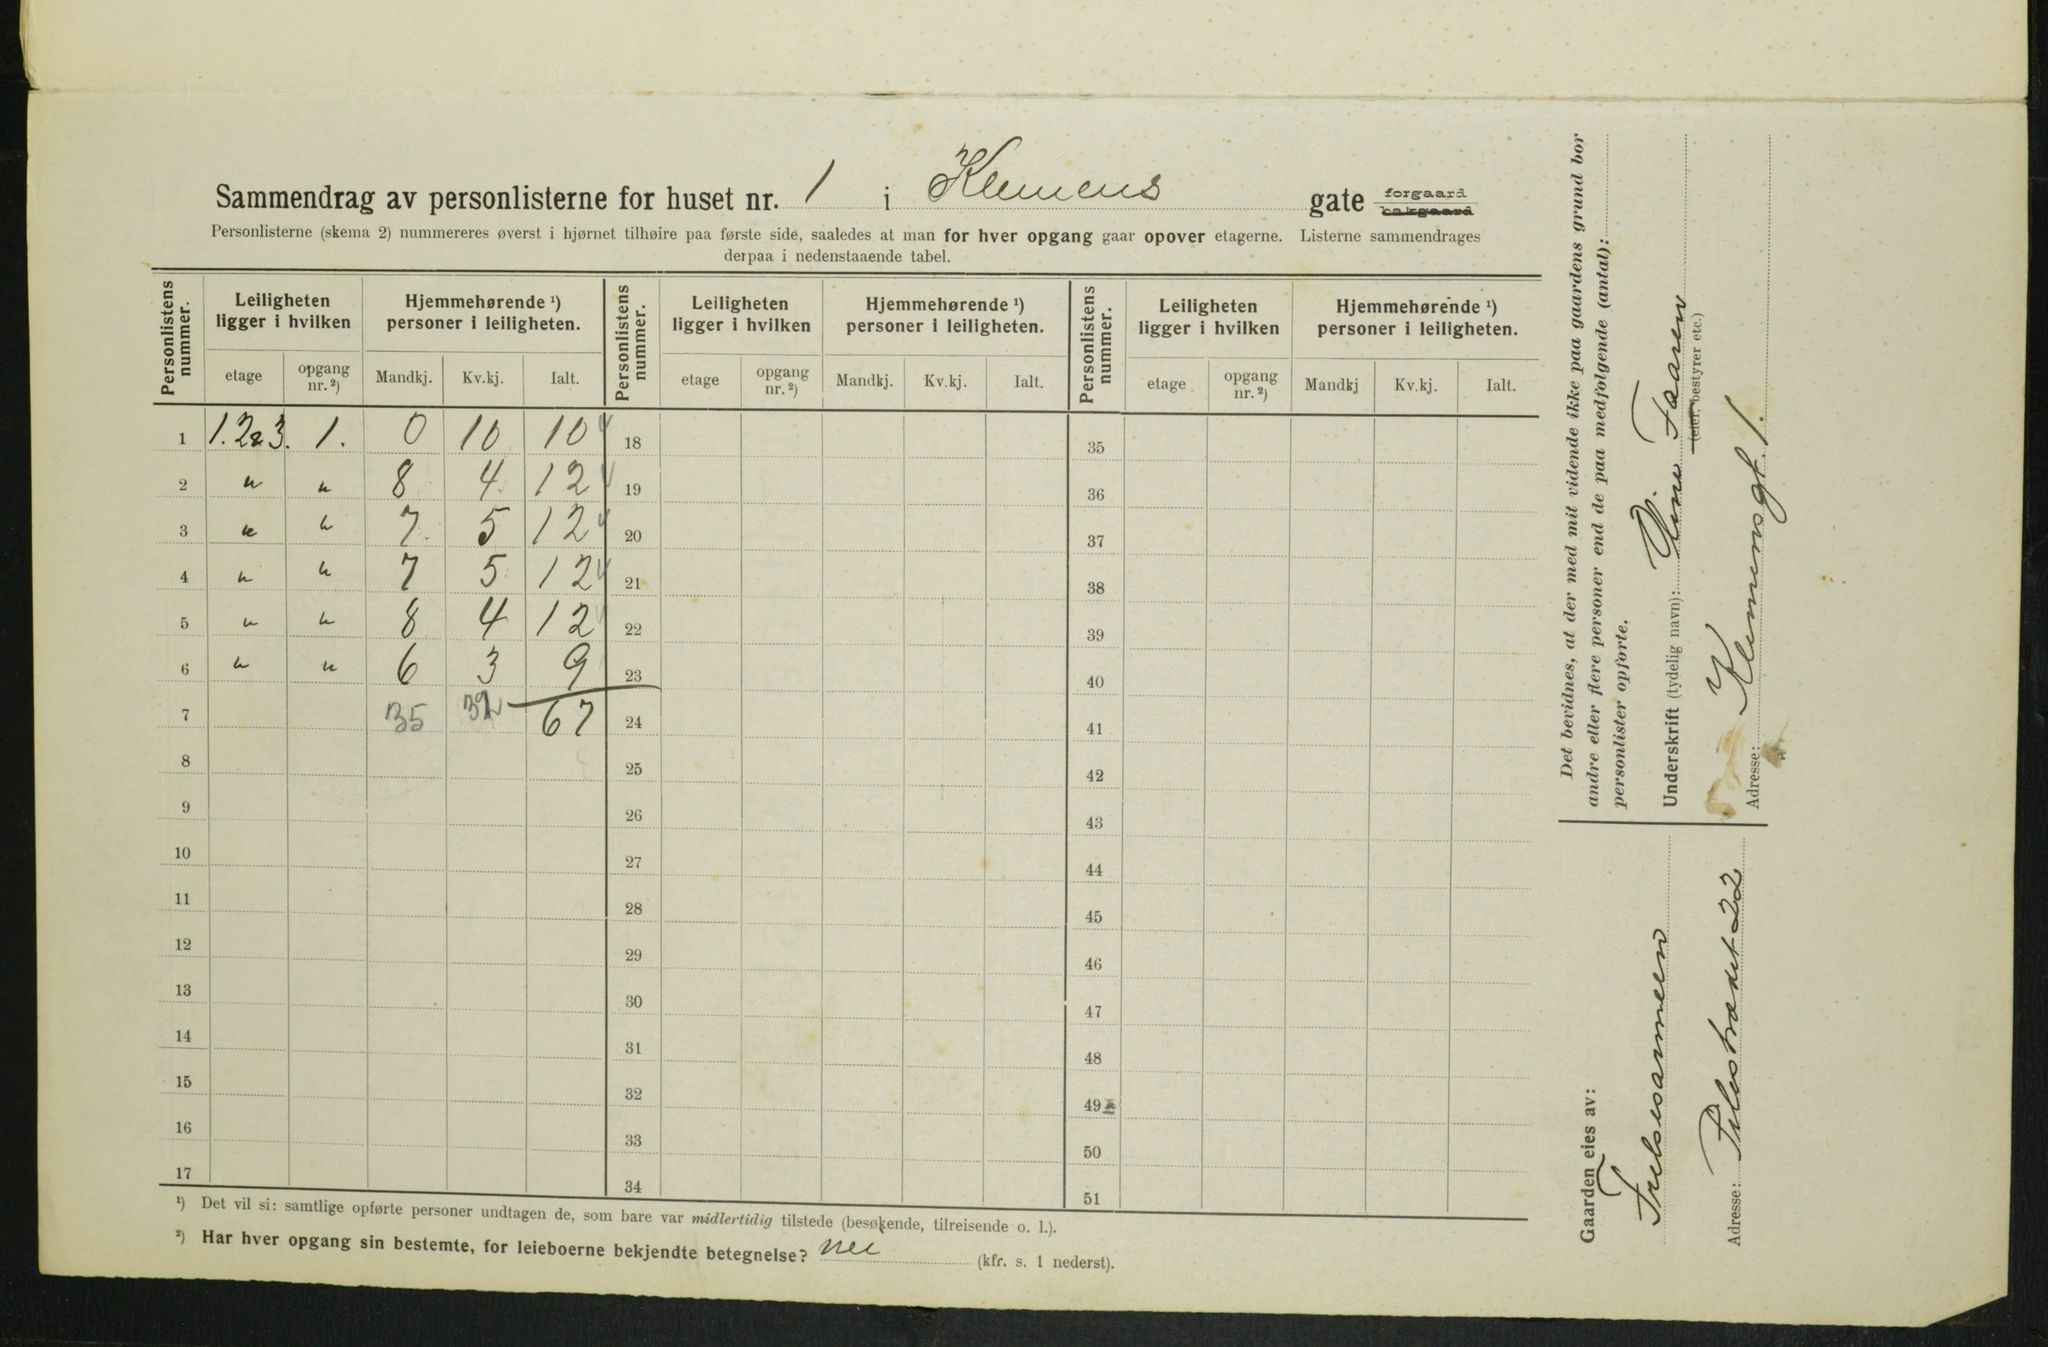 Sammendrag av personlisterne for huset nr. 1 i Klemens gate forgaard
bakgaard
Personlisterne (skema 2) nummereres øverst i hjørnet tilhøire paa første side, saaledes at man for hver opgang gaar opover etagerne. Listerne sammendrages
derpaa i nedenstaaende tabel.
Personlistens nummer. Leiligheten ligger i hvilken Hjemmehørende ¹) personer i leiligheten. Personlistens nummer. Leiligheten ligger i hvilken Hjemmehørende ¹) personer i leiligheten. Personlistens nummer. Leiligheten ligger i hvilken Hjemmehørende ¹) personer i leiligheten.
etage opgang nr. ²) Mandkj. Kv.kj. Ialt. etage opgang nr. ²) Mandkj. Kv.kj. Ialt. etage opgang nr. ²) Mandkj Kv.kj. Ialt.
1 1.2&3. 1. 0 10 10 18 35
2 " " 8 4 12 19 36
3 " " 7 5 12 20 37
4 " " 7 5 12 21 38
5 " " 8 4 12 22 39
6 " " 6 3 9 23 40
7 35 32 67 24 41
8 25 42
9 26 43
10 27 44
11 28 45
12 29 46
13 30 47
14 31 48
15 32 49
16 33 50
17 34 51
¹) Det vil si: samtlige opførte personer undtagen de, som bare var midlertidig tilstede (besøkende, tilreisende o. l.).
²) Har hver opgang sin bestemte, for leieboerne bekjendte betegnelse? nei (kfr. s. 1 nederst).
Det bevidnes, at der med mit vidende ikke paa gaardens grund bor
andre eller flere personer end de paa medfølgende (antal):
personlister opførte.
Underskrift (tydelig navn): Faaen
(eier, bestyrer etc.)
Adresse: Klemensgt. 1.
Gaarden eies av:
Frelsesarmeen
Adresse: Pilestrædet 22